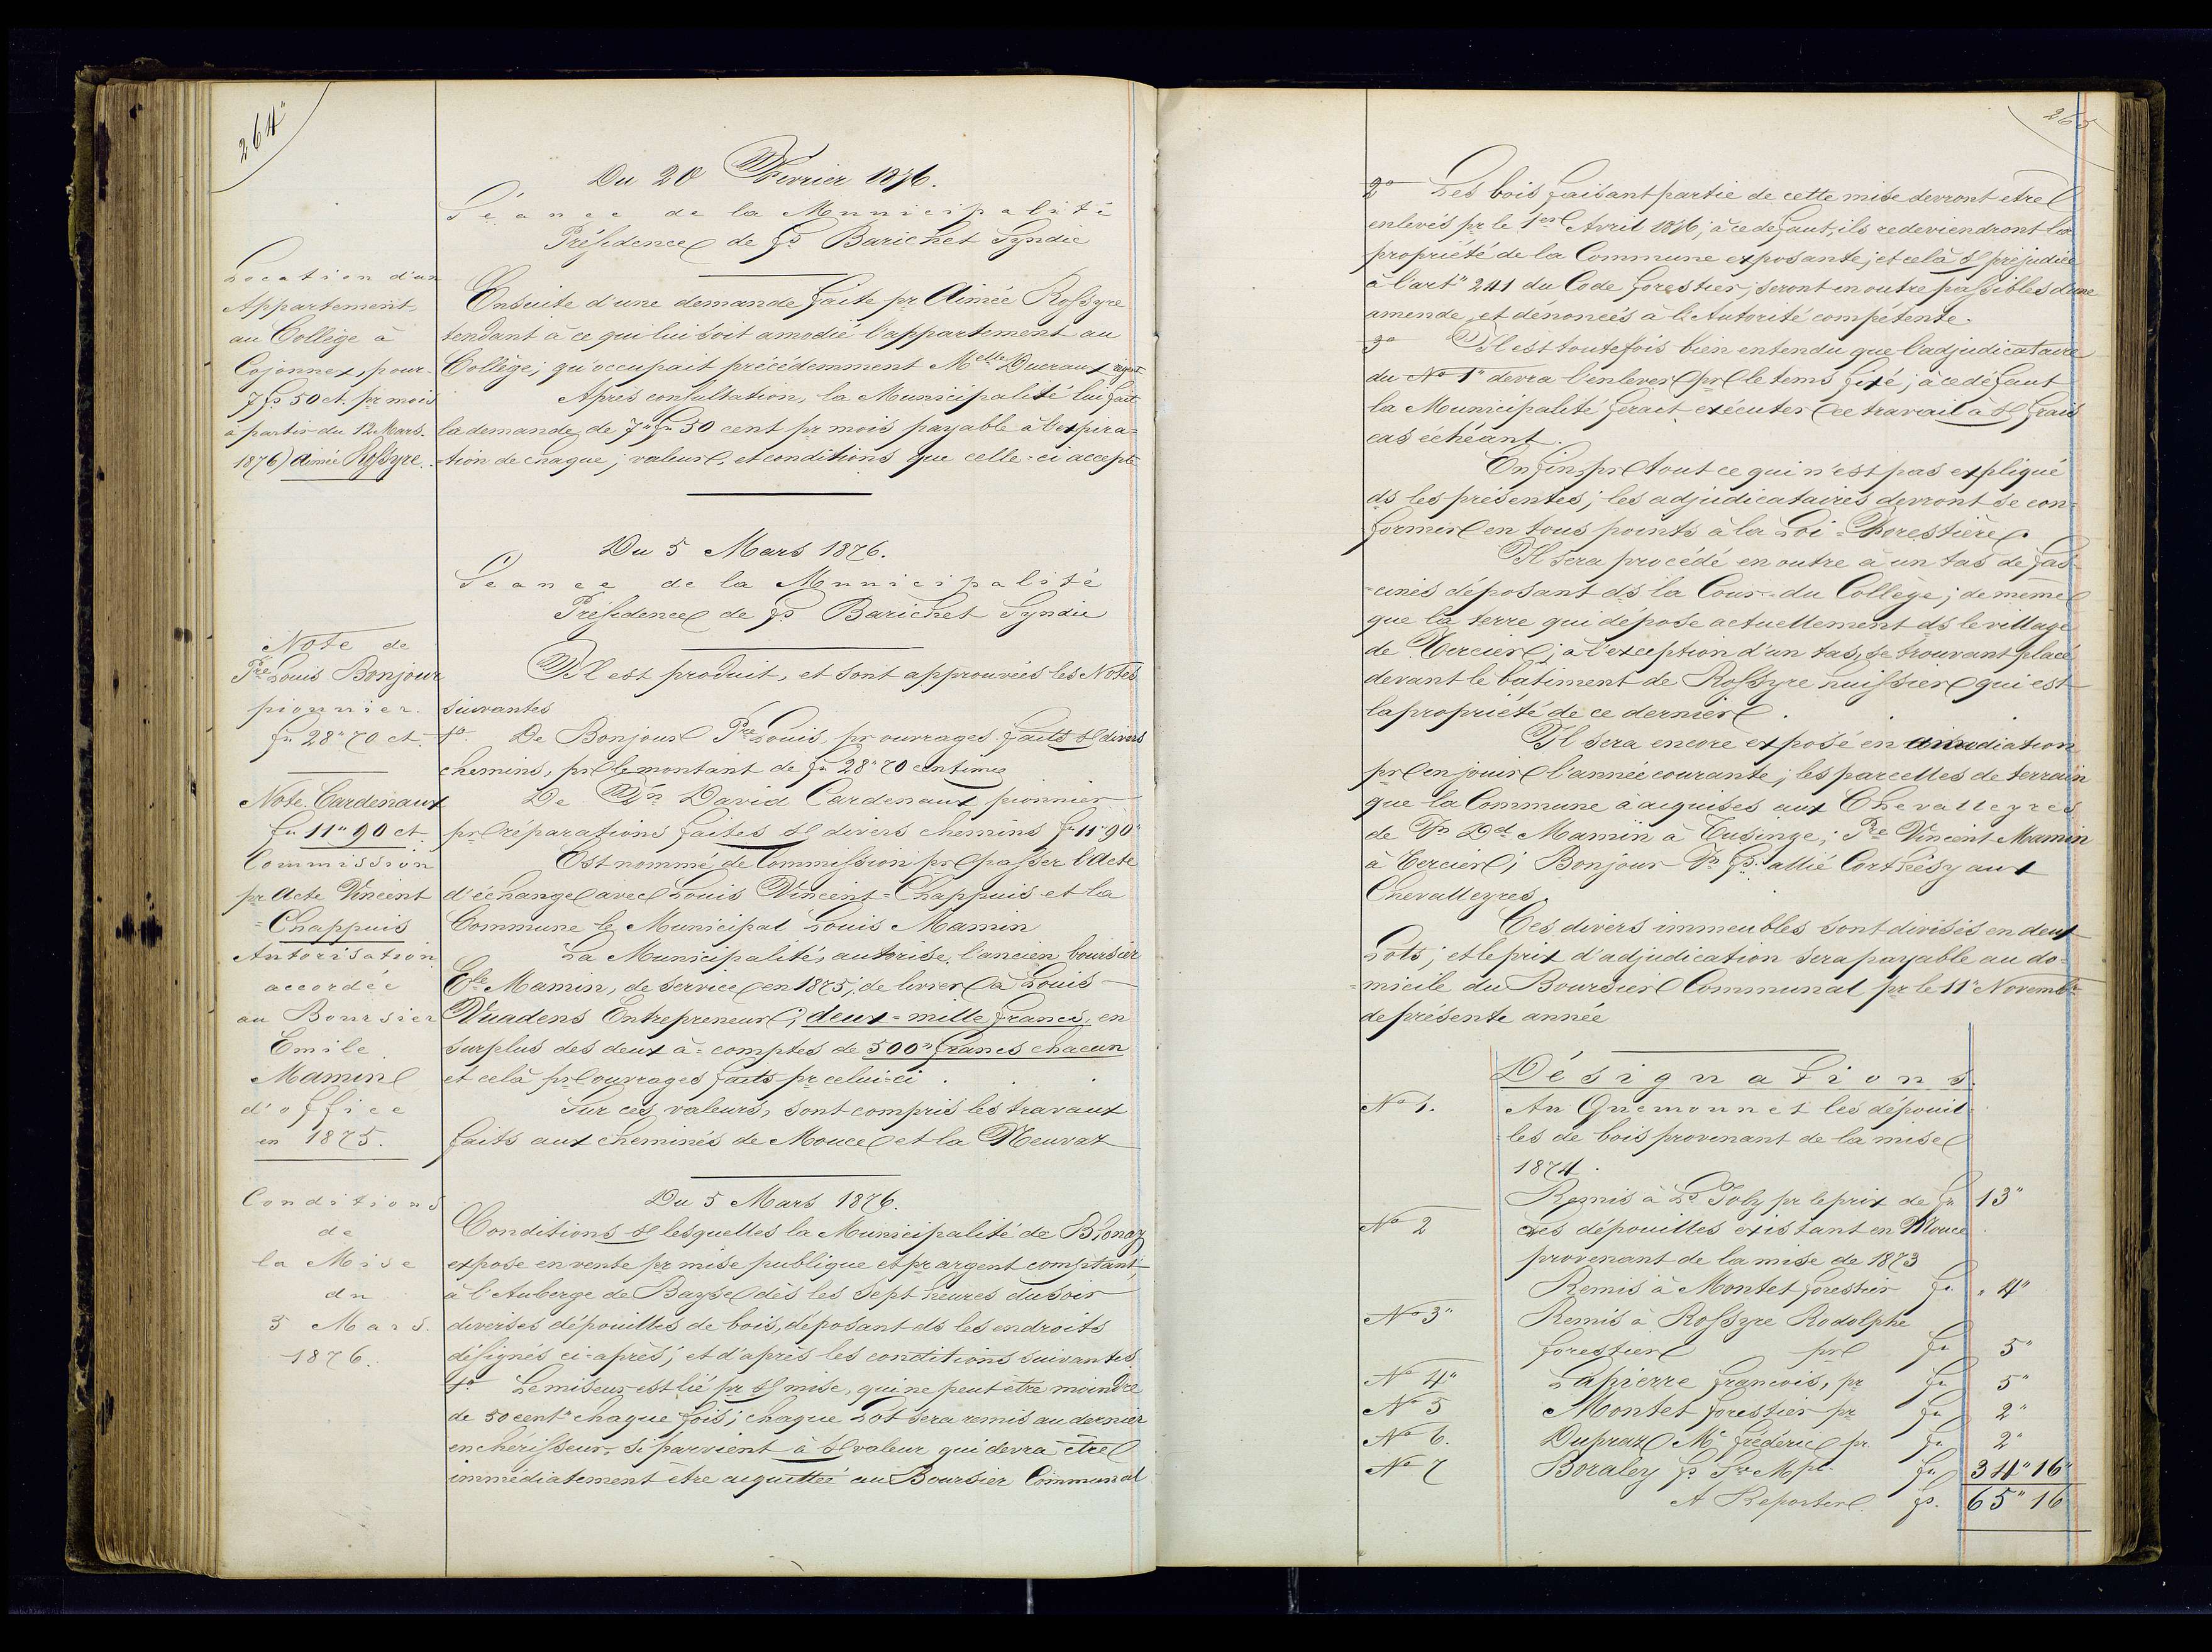 264"
Du 20 Février 1876.
Séance de la Municipalité
Présidence de fs Barichet Syndic
Location d'un
Appartement,
au Collège à
Cojonnex, pour
7 fs 50 ct. pr mois
à partir du 12 Mars.
1876) Aimée Rossyre.
Ensuite d'une demande faite pr Aimée Rossyre
tendant à ce qui lui soit amodié l'appartement au
Collège; qu'occupait précédemment Melle Ducraux régent
Après consultation, la Municipalité lui fait
la demande de 7" fr 50 cent pr mois payable à l'expira=
tion de chaque; valeur, et conditions que celle-ci accepte
Du 5 Mars 1876.
Séance de la Municipalité
Présidence de fs Barichet Syndic
Note de
Pre Louis Bonjour
pionnier.
fr 28" 70 ct.
Il est produit, et sont approuvées les Notes
suivantes
1o. De Bonjour Pre Louis, pr ouvrages faits sr divers
chemins, pr le montant de fr 28" 70 centimes
Note Cardenaux
fr 11" 90 ct
De Jn David Cardenaux pionnier
pr réparations faites sr divers chemins fr 11" 90"
Commission
pr Acte Vincent
=Chappuis
Est nommé de Commission pr passer l'Acte
d'échange avec Louis Vincent=Chappuis et la
Commune le Municipal Louis Mamin
Autorisation
accordée
au Boursier
Emile
Mamin
d'office
en 1875.
La Municipalité, autorise, l'ancien boursier
Ele Mamin, de service en 1875, de livrer à Louis
Vuadens Entrepreneur, deux=mille francs, en
surplus des deux à=comptes de 500" francs chacun
et celà pr ouvrages faits pr celui-ci.
Sur ces valeurs, sont compris les travaux
faits aux cheminés de Mouce et la Neuvaz
Du 5 Mars 1876.
Conditions
de
la Mise
du
5 Mars.
1876.
Conditions sr lesquelles la Municipalité de Blonay
expose en vente pr mise publique et pr argent comptant,
à l'Auberge de Bayse dès les sept heures du soir
diverses dépouilles de bois, déposant ds les endroits
désignés ci=après; et d'après les conditions suivantes
1o. Le miseur est lié pr sr mise, qui ne peut être moindre
de 50 cent" chaque fois; chaque Lot sera remis au dernier
enchérisseur, si parvient à sr valeur qui devra être
immédiatement être acquittée au Boursier Communal
265
2o Les bois faisant partie de cette mise devront etre
enlevés pr le 1er Avril 1876; à ce defaut, ils redeviendront la
propriété de la Commune exposante, et celà sr préjudice
à l'art" 241 du Code forestier; seront en outre passibles d'une
amende, et dénoncés à l'Autorité compétente.
3o Il est toutefois bien entendu que l'adjudicataire
du No 1" devra l'enlever pr le tems fixé; à ce défaut
la Municipalité ferait exécuter ce travail à sr frais
cas échéant.
Enfin pr tout ce qui n'est pas expliqué
ds les présentes; les adjudicataires devront se con=
former en tous points à la Loi=Forestière.
Il sera procédé en outre à un tas de fas=
=cines déposant ds la Cour=du Collège; de même
que la terre qui dépose actuellement ds le village
de Tercier; à l'exception d'un tas, se trouvant placé
devant le bâtiment de Rossyre huissier qui est
la propriété de ce dernier.
Il sera encore exposé en amodiation
pr en jouir l'année courante; les parcelles de terrain
que la Commune a acquises aux Chevalleyres
de Jn Dd Mamin à Tusinge; Pre Vincent Mamin
à Tercier; Bonjour Jn fs. allié Corthésy aux
Chevalleyres.
Ces divers immeubles sont divisés en deux
Lots; et le prix d'adjudication sera payable au do=
=micile du Boursier Communal pr le 11" Novembre
de présente année
Désignations.
No 1. Au Quemonnet les dépouil=
les de bois provenant de la mise
1874.
Remis à Ls Joly pr le prix de fr 13"
No 2 Les dépouilles existant en Mouce
provenant de la mise de 1873
Remis à Montet forestier fr. " 4"
No 3" Remis à Rossyre Rodolphe
forestier pr fr 5"
No 4" Lapierre françois, pr fr 5"
No 5 Montet forestier pr fr 2"
No 6. Dupraz Mc fréderic pr. fr. 2"
No 7 Boraley fs fr 34" 16"
A Reporter fs. 65" 16